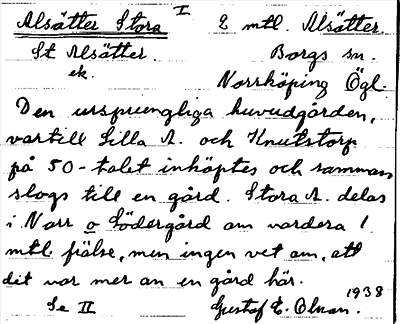 Alsätter Stora I 2 mtl. Alsätter.
St Alsätter. Borgs sn.
ek. Norrköping Ögl.
Den ursprungliga huvudgården,
vartill Lilla A. och Knutstorp
på 50-talet inköptes och samman
slogs till en gård. Stora A. delas
i Norr o Södergård om vardera 1
mtl frälse, men ingen vet om, att
dit var mer än en gård här.
Se II Gustaf E. Olsson. 1938